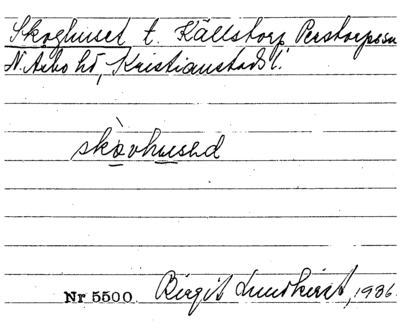 Skoghuset t. Källstorp Perstorps sn
N. Åsbo hd, Kristianstads l.
skòvhused
Nr 5500. Birgit Lundkvist, 1936.